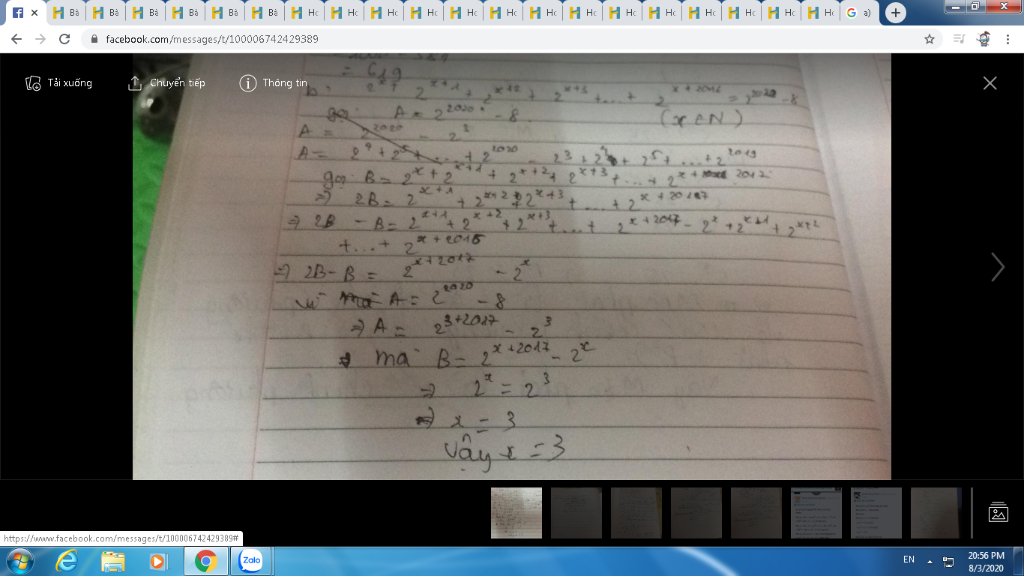 Bà Bà Bà Bà Bà Bà Hc Hc Hc Hc Hc Hc Hc Hc Hc Hc Hc Hc Hc Hc a)
facebook.com/messages/t/100006742429389
Tải xuống Chuyển tiếp Thông tin
= 619
2^{x+1} + 2^{x+2} + 2^{x+3} + ... +
A = 2^{2020} - 8. (x ∈ N)
A = 2^{2020} - 2^3
gọi B = 2^x + 2^{x+1} + 2^{x+2} + 2^{x+3} + ... +
=> 2B = 2^{x+1} + 2^{x+2} + 2^{x+3} + ... + 2^{x+2017}
=> 2B - B = 2^{x+1} + 2^{x+2} + 2^{x+3} + ... + 2^{x+2017} - 2^x + 2^{x+1} + 2^{x+2}
+ ... + 2^{x+2016}
=> 2B - B = 2^{x+2017} - 2^x
vì A = 2^{2020} - 8
=> A = 2^{3+2017} - 2^3
mà B = 2^{x+2017} - 2^x
=> 2^x = 2^3
=> x = 3
Vậy x = 3
https://www.facebook.com/messages/t/100006742429389#
Zalo EN 20:56 PM
8/3/2020